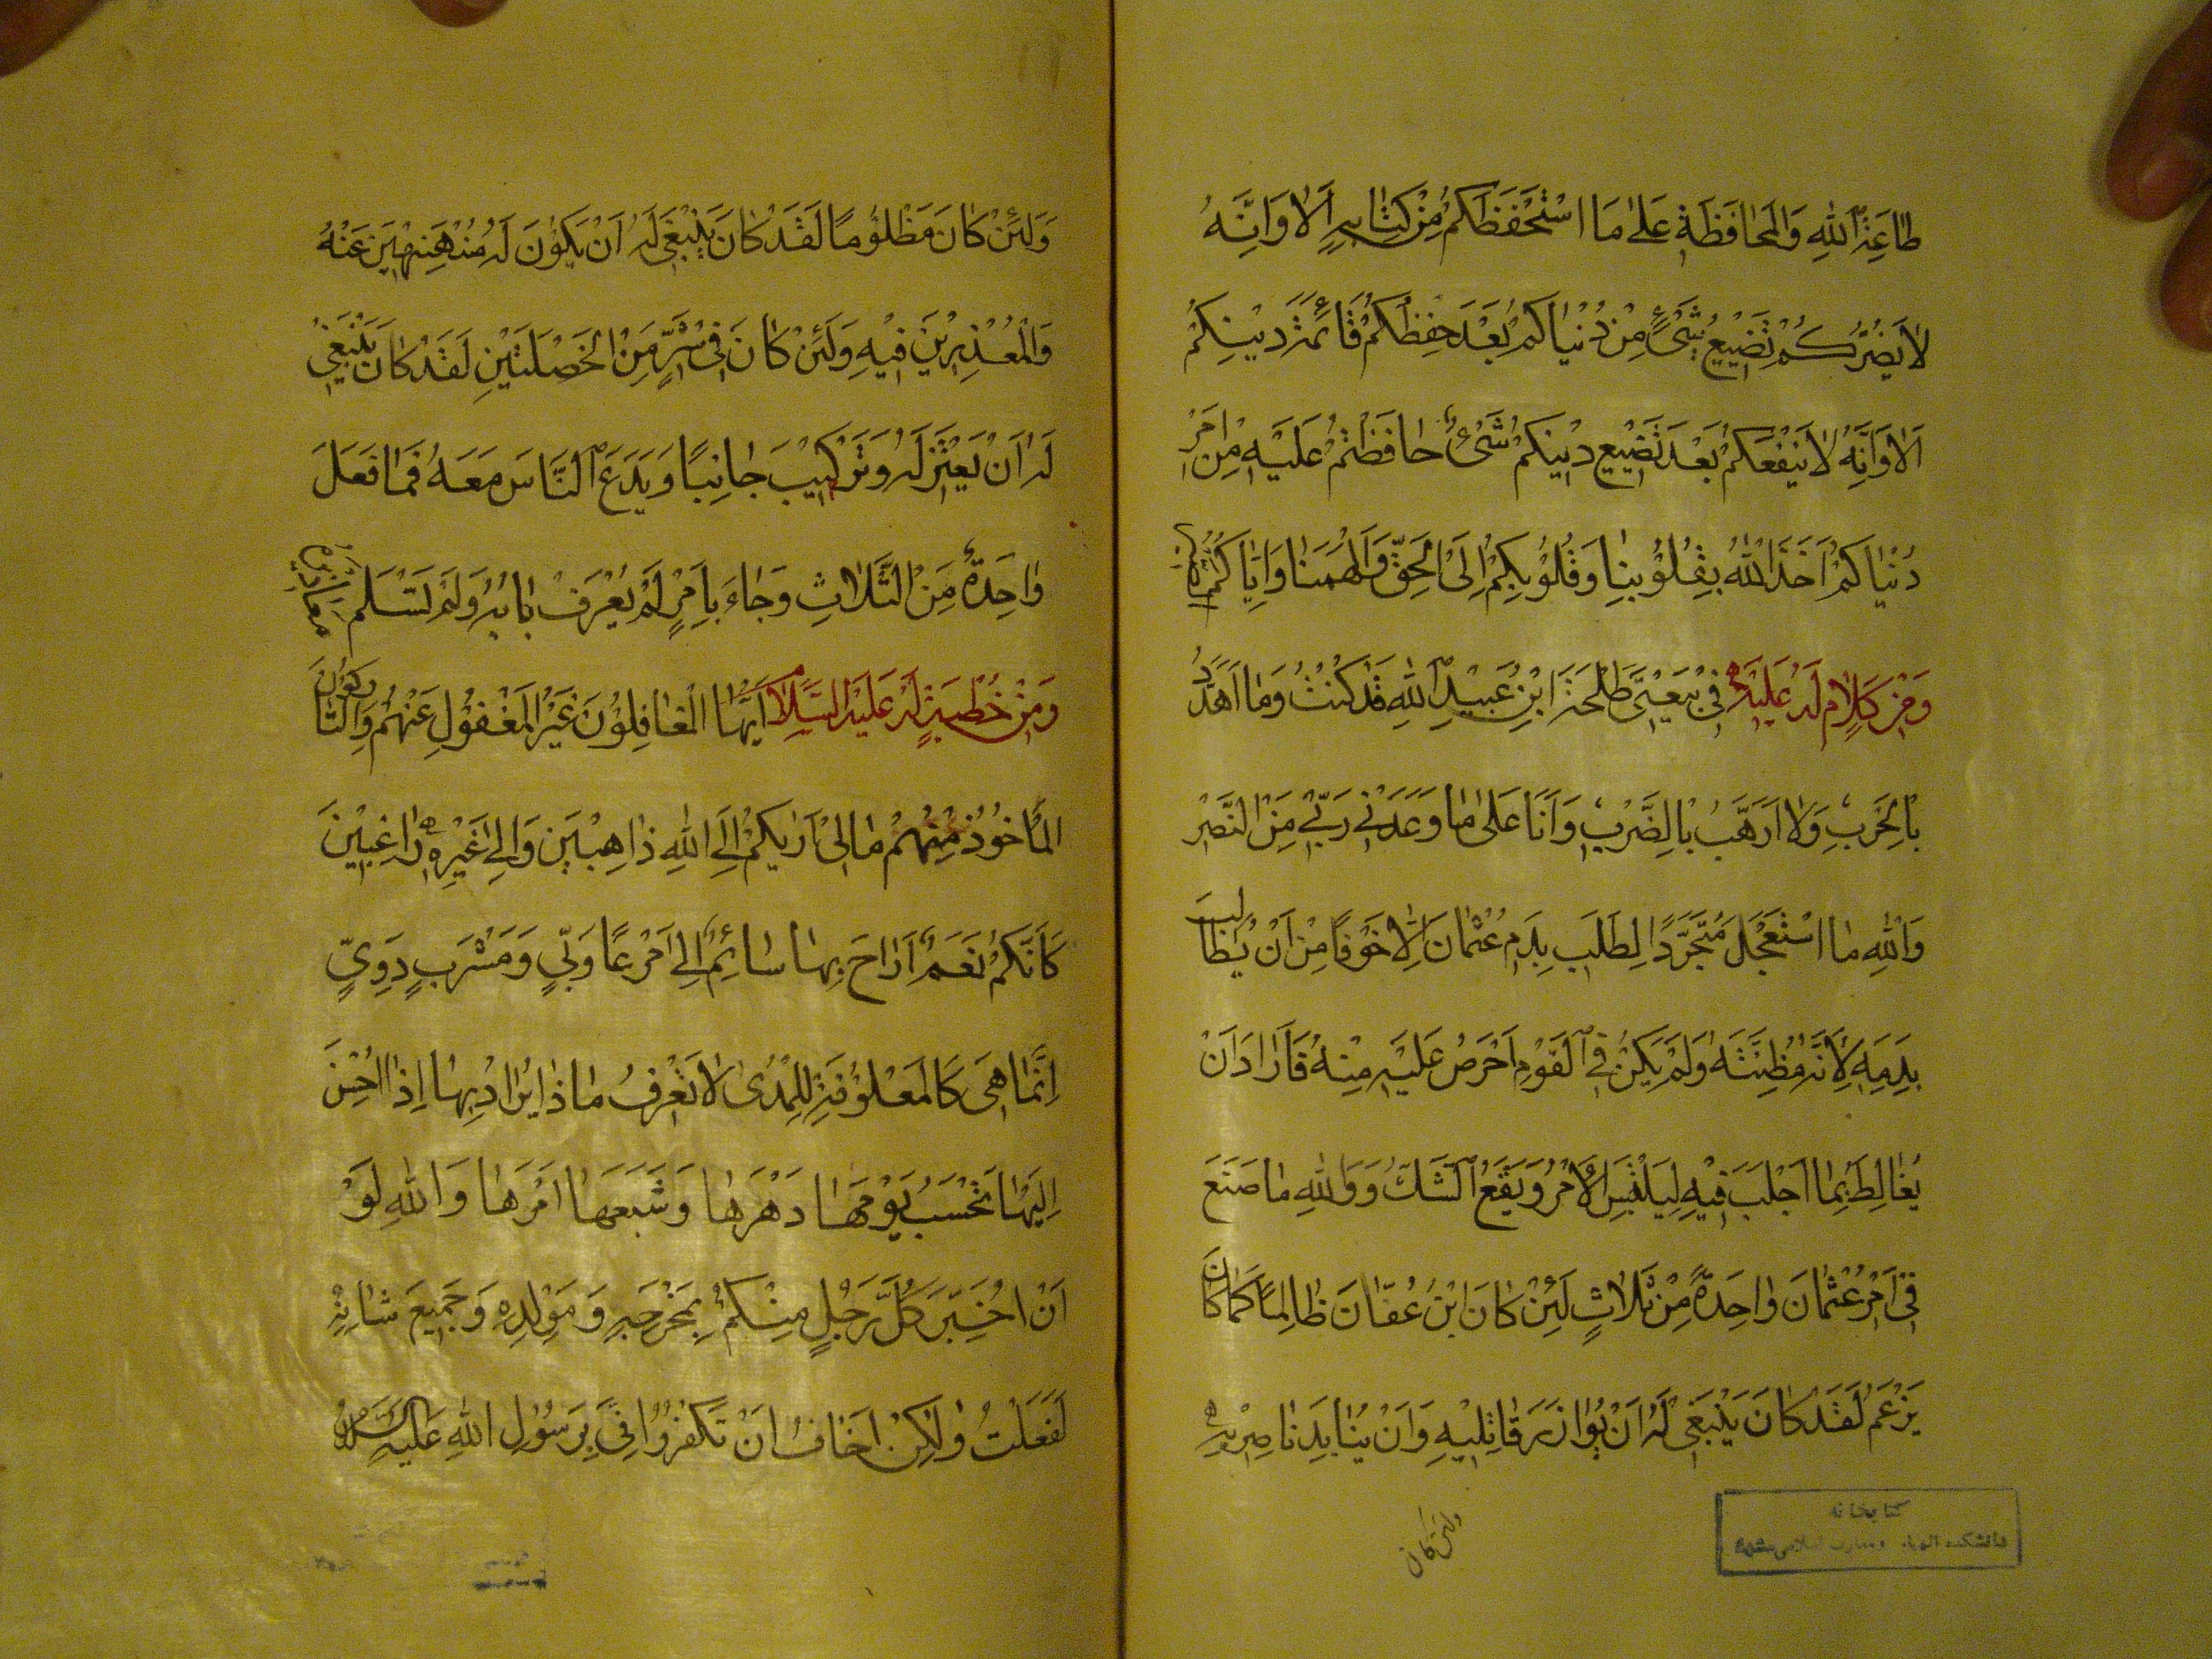 طَاعَةِ اللّٰهِ وَالْمُحَافَظَةِ عَلٰى مَا اسْتَحْفَظَكُمْ مِنْ كِتَابِهِ اَلَا وَاِنَّهُ
لَا يَضُرُّكُمْ تَضْيِيعُ شَىْءٍ مِنْ دُنْيَاكُمْ بَعْدَ حِفْظِكُمْ قَائِمَةَ دِينِكُمْ
اَلَا وَاِنَّهُ لَا يَنْفَعُكُمْ بَعْدَ تَضْيِيعِ دِينِكُمْ شَىْءٌ حَافَظْتُمْ عَلَيْهِ مِنْ اَمْرِ
دُنْيَاكُمْ اَخَذَ اللّٰهُ بِقُلُوبِنَا وَقُلُوبِكُمْ اِلَى الْحَقِّ وَاَلْهَمَنَا وَاِيَّاكُمُ
وَمِنْ كَلَامٍ لَهُ عَلَيْهِ فِى مَعْنَى طَلْحَةَ ابْنِ عُبَيْدِ اللّٰهِ قَدْ كُنْتُ وَمَا اُهَدَّدُ
بِالْحَرْبِ وَلَا اُرَهَّبُ بِالضَّرْبِ وَاَنَا عَلٰى مَا وَعَدَنِى رَبِّى مِنَ النَّصْرِ
وَاللّٰهِ مَا اسْتَعْجَلَ مُتَجَرِّدًا لِطَلَبِ بِدَمِ عُثْمَانَ اِلَّا خَوْفًا مِنْ اَنْ يُطَالَبَ
بِدَمِهِ لِاَنَّهُ مَظِنَّتُهُ وَلَمْ يَكُنْ فِى الْقَوْمِ اَحْرَصُ عَلَيْهِ مِنْهُ فَاَرَادَ اَنْ
يُغَالِطَ بِمَا اَجْلَبَ فِيهِ لِيَلْتَبِسَ الْاَمْرُ وَيَقَعَ الشَّكُّ وَوَاللّٰهِ مَا صَنَعَ
فِى اَمْرِ عُثْمَانَ وَاحِدَةً مِنْ ثَلَاثٍ لَئِنْ كَانَ ابْنُ عَفَّانَ ظَالِمًا كَمَا كَانَ
يَزْعَمُ لَقَدْ كَانَ يَنْبَغِى لَهُ اَنْ يُوَازِرَ قَاتِلِيهِ وَاَنْ يُنَابِذَ نَاصِرِيهِ
ولئن كان
كتابخانه
دانشكده الهيات ومعارف اسلامى مشهد
وَلَئِنْ كَانَ مَظْلُومًا لَقَدْ كَانَ يَنْبَغِى لَهُ اَنْ يَكُونَ لَهُ مُنَهْنِهِينَ عَنْهُ
وَالْمُعْذِرِينَ فِيهِ وَلَئِنْ كَانَ فِى شَرٍّ مِنَ الْخَصْلَتَيْنِ لَقَدْ كَانَ يَنْبَغِى
لَهُ اَنْ يَعْتَزِلَهُ وَتَرْكِيبَ جَانِبًا وَيَدَعَ النَّاسَ مَعَهُ فَمَا فَعَلَ
وَاحِدَةً مِنَ الثَّلَاثِ وَجَاءَ بِاَمْرٍ لَمْ يُعْرَفْ بَابُهُ وَلَمْ تَسْلَمْ مَعَاذِيرُهُ
وَمِنْ خُطْبَةٍ لَهُ عَلَيْهِ السَّلَامُ اَيُّهَا الْغَافِلُونَ غَيْرُ الْمَغْفُولِ عَنْهُمْ وَالتَّارِكُونَ
الْمَأْخُوذُ مِنْهُمْ مَا لِى اَرٰيكُمْ اِلَى اللّٰهِ ذَاهِبِينَ وَاِلٰى غَيْرِهِ رَاغِبِينَ
كَاَنَّكُمْ نَعَمٌ اَرَاحَ بِهَا سَائِمٌ اِلٰى اَمْرَعًا وَبِيٍّ وَمَشْرَبٍ دَوِيٍّ
اِنَّمَا هِىَ كَالْمَعْلُوفَةِ لِلْمُدٰى لَا تَعْرِفُ مَاذَا يُرَادُ بِهَا اِذَا اُحْسِنَ
اِلَيْهَا تَحْسَبُ يَوْمَهَا دَهْرَهَا وَشَبَعَهَا اَمْرَهَا وَاللّٰهِ لَوْ
اَنْ اُخْبِرَ كُلَّ رَجُلٍ مِنْكُمْ بِمَخْرَجِهِ وَمَوْلِدِهِ وَجَمِيعِ شَانِهِ
لَفَعَلْتُ وَلٰكِنْ اَخَافُ اَنْ تَكْفُرُوا فِىَّ بِرَسُولِ اللّٰهِ عَلَيْهِ السَّلَامُ